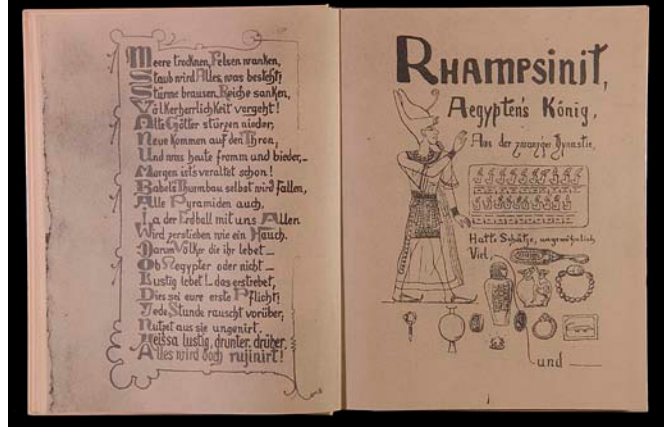 Meere trocknen, Felsen wanken,
Staub wird Alles, was besteht!
Stürme brausen, Reiche sanken,
Völkerherrlichkeit vergeht!
Alte Götter stürzen nieder,
Neue kommen auf den Thron,
Und was heute fromm und bieder,_
Morgen ist's veraltet schon!
Babels Thurmbau selbst wird fallen,
Alle Pyramiden auch,
Ja der Erdball mit uns Allen
Wird zerstieben wie ein Hauch.
Darum Völker die ihr lebet _
Ob Aegypter oder nicht _
Lustig lebet! das erstrebet,
Dies sei eure erste Pflicht!
Jede Stunde rauscht vorüber,
Nutzet aus sie ungenirt.
Heissa, lustig, drunter, drüber,
Alles wird doch rujinirt!
RHAMPSINIT,
Aegypten's König,
Aus der zwanzigs. Dynastie,
Hatte Schätze, ungewöhnlich
Viel,
und ___
1